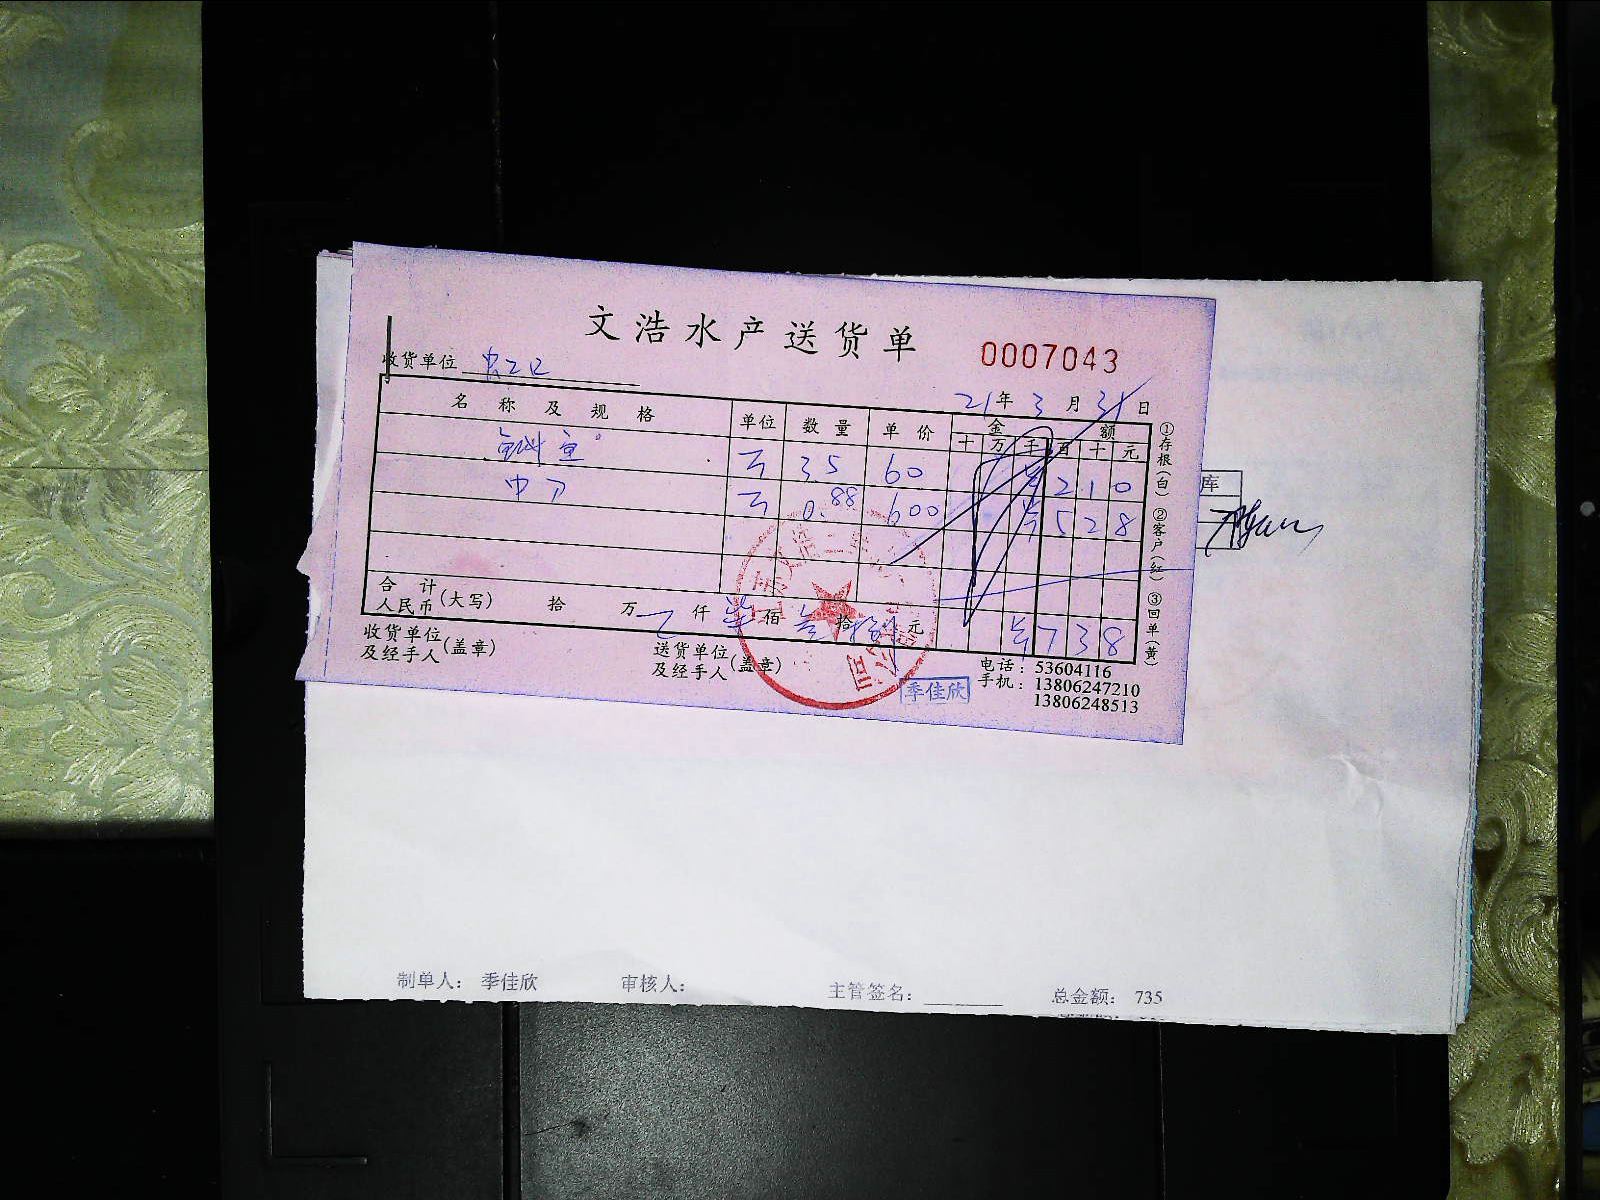 文浩水产送货单
0007043
收货单位
21年3月31日
名称及规格 单位 数量 单价 金额
十 万 千 百 十 元
鱼 3.5 60 210
中刀 0.88 600 ¥528
合计
人民币(大写) 拾 万 仟 柒佰 叁拾捌元 ¥738
收货单位
及经手人(盖章)
送货单位
及经手人(盖章)
季佳欣
电话:53604116
手机:13806247210
13806248513
①存根(白) ②客户(红) ③回单(黄)
库
制单人: 季佳欣 审核人: 主管签名: 总金额: 735